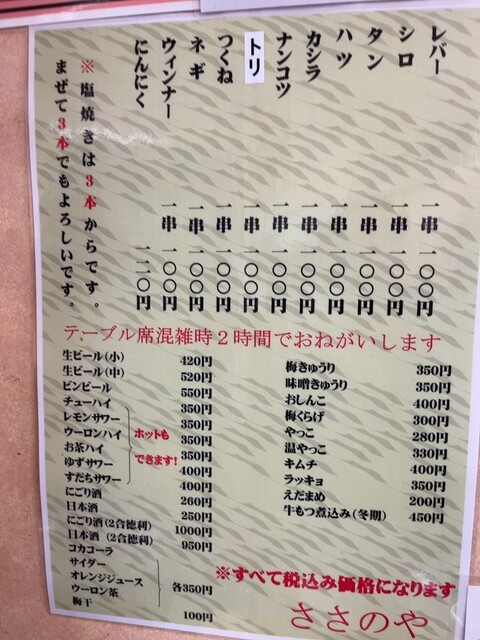 レバー 一串 一〇〇円
シロ 一串 一〇〇円
タン 一串 一〇〇円
ハツ 一串 一〇〇円
カシラ 一串 一〇〇円
ナンコツ 一串 一〇〇円
トリ 一串 一〇〇円
つくね 一串 一〇〇円
ネギ 一串 一〇〇円
ウィンナー 一串 一〇〇円
にんにく 一二〇円
※塩焼きは3本からです。
まぜて3本でもよろしいです。
テーブル席混雑時2時間でおねがいします
生ビール(小) 420円
生ビール(中) 520円
ビンビール 550円
チューハイ 350円
レモンサワー 350円
ウーロンハイ 350円
お茶ハイ 350円
ゆずサワー 400円
すだちサワー 400円
ホットも
できます!
にごり酒 260円
日本酒 250円
にごり酒(2合徳利) 1000円
日本酒(2合徳利) 950円
コカコーラ
サイダー
オレンジジュース
ウーロン茶
各350円
梅干 100円
梅きゅうり 350円
味噌きゅうり 350円
おしんこ 400円
梅くらげ 300円
やっこ 280円
温やっこ 330円
キムチ 400円
ラッキョ 350円
えだまめ 200円
牛もつ煮込み(冬期) 450円
※すべて税込み価格になります
ささのや